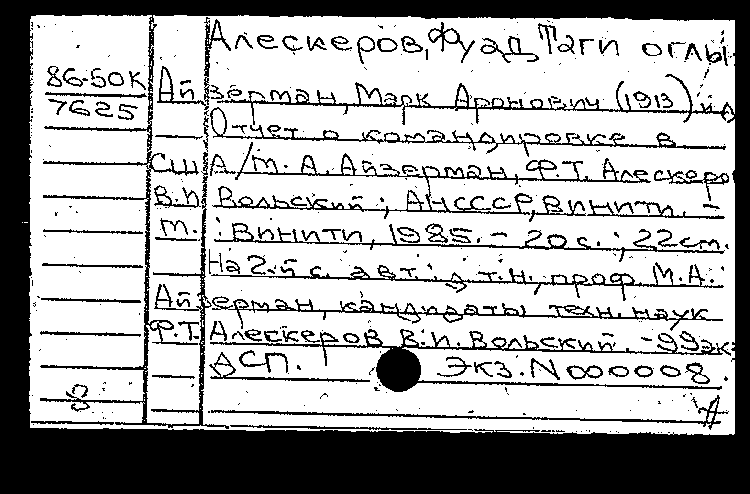 Алескеров, Фуад Таги оглы
86-50К
7625
Айзерман, Марк Аронович (1913) и д
Отчет о командировке в
США/М.А. Айзерман, Ф.Т. Алескеро
В.И Вольский; АНСССР, ВИНИТИ. –
М.: ВИНИТИ, 1985. – 20 с.; 22см.
На 2-й с. авт.: д.т.н., проф. М.А.
Айзерман, кандидаты техн. наук
Ф.Т. Алескеров В.И. Вольский. – 99эк
ДСП. Экз. N 000008.